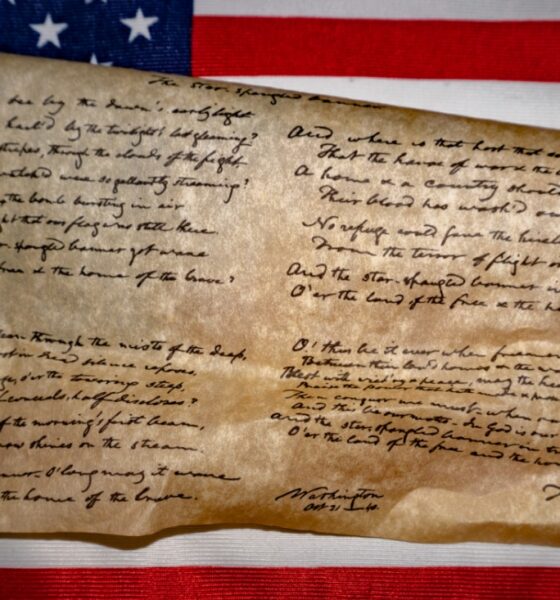 The Star-spangled banner
see by the dawn's early light
hail'd by the twilight's last gleaming?
stripes, through the clouds of the fight,
watched were so gallantly streaming?
the bomb bursting in air
ght that our flag was still there
spangled banner yet wave
free & the home of the brave?
through the mists of the deep,
in dread silence reposes,
o'er the towering steep,
conceals, half discloses?
of the morning's first beam,
now shines on the stream.
O! long may it wave
the home of the brave.
And where is that host that
That the havoc of war & the
A home & a country should
Their blood has wash'd o
No refuge could save the
From the terror of flight o
And the star-spangled banner in
O'er the land of the free & the h
O! thus be it ever when freem
Between their lov'd homes & the w
Blest with vict'ry & peace, may the
Praise the power that made & p
Then conquer we must, when o
And this be our motto - In God is our
And the star spangled banner in tr
O'er the land of the free and the ho
Washington
Oct 21 - 40.